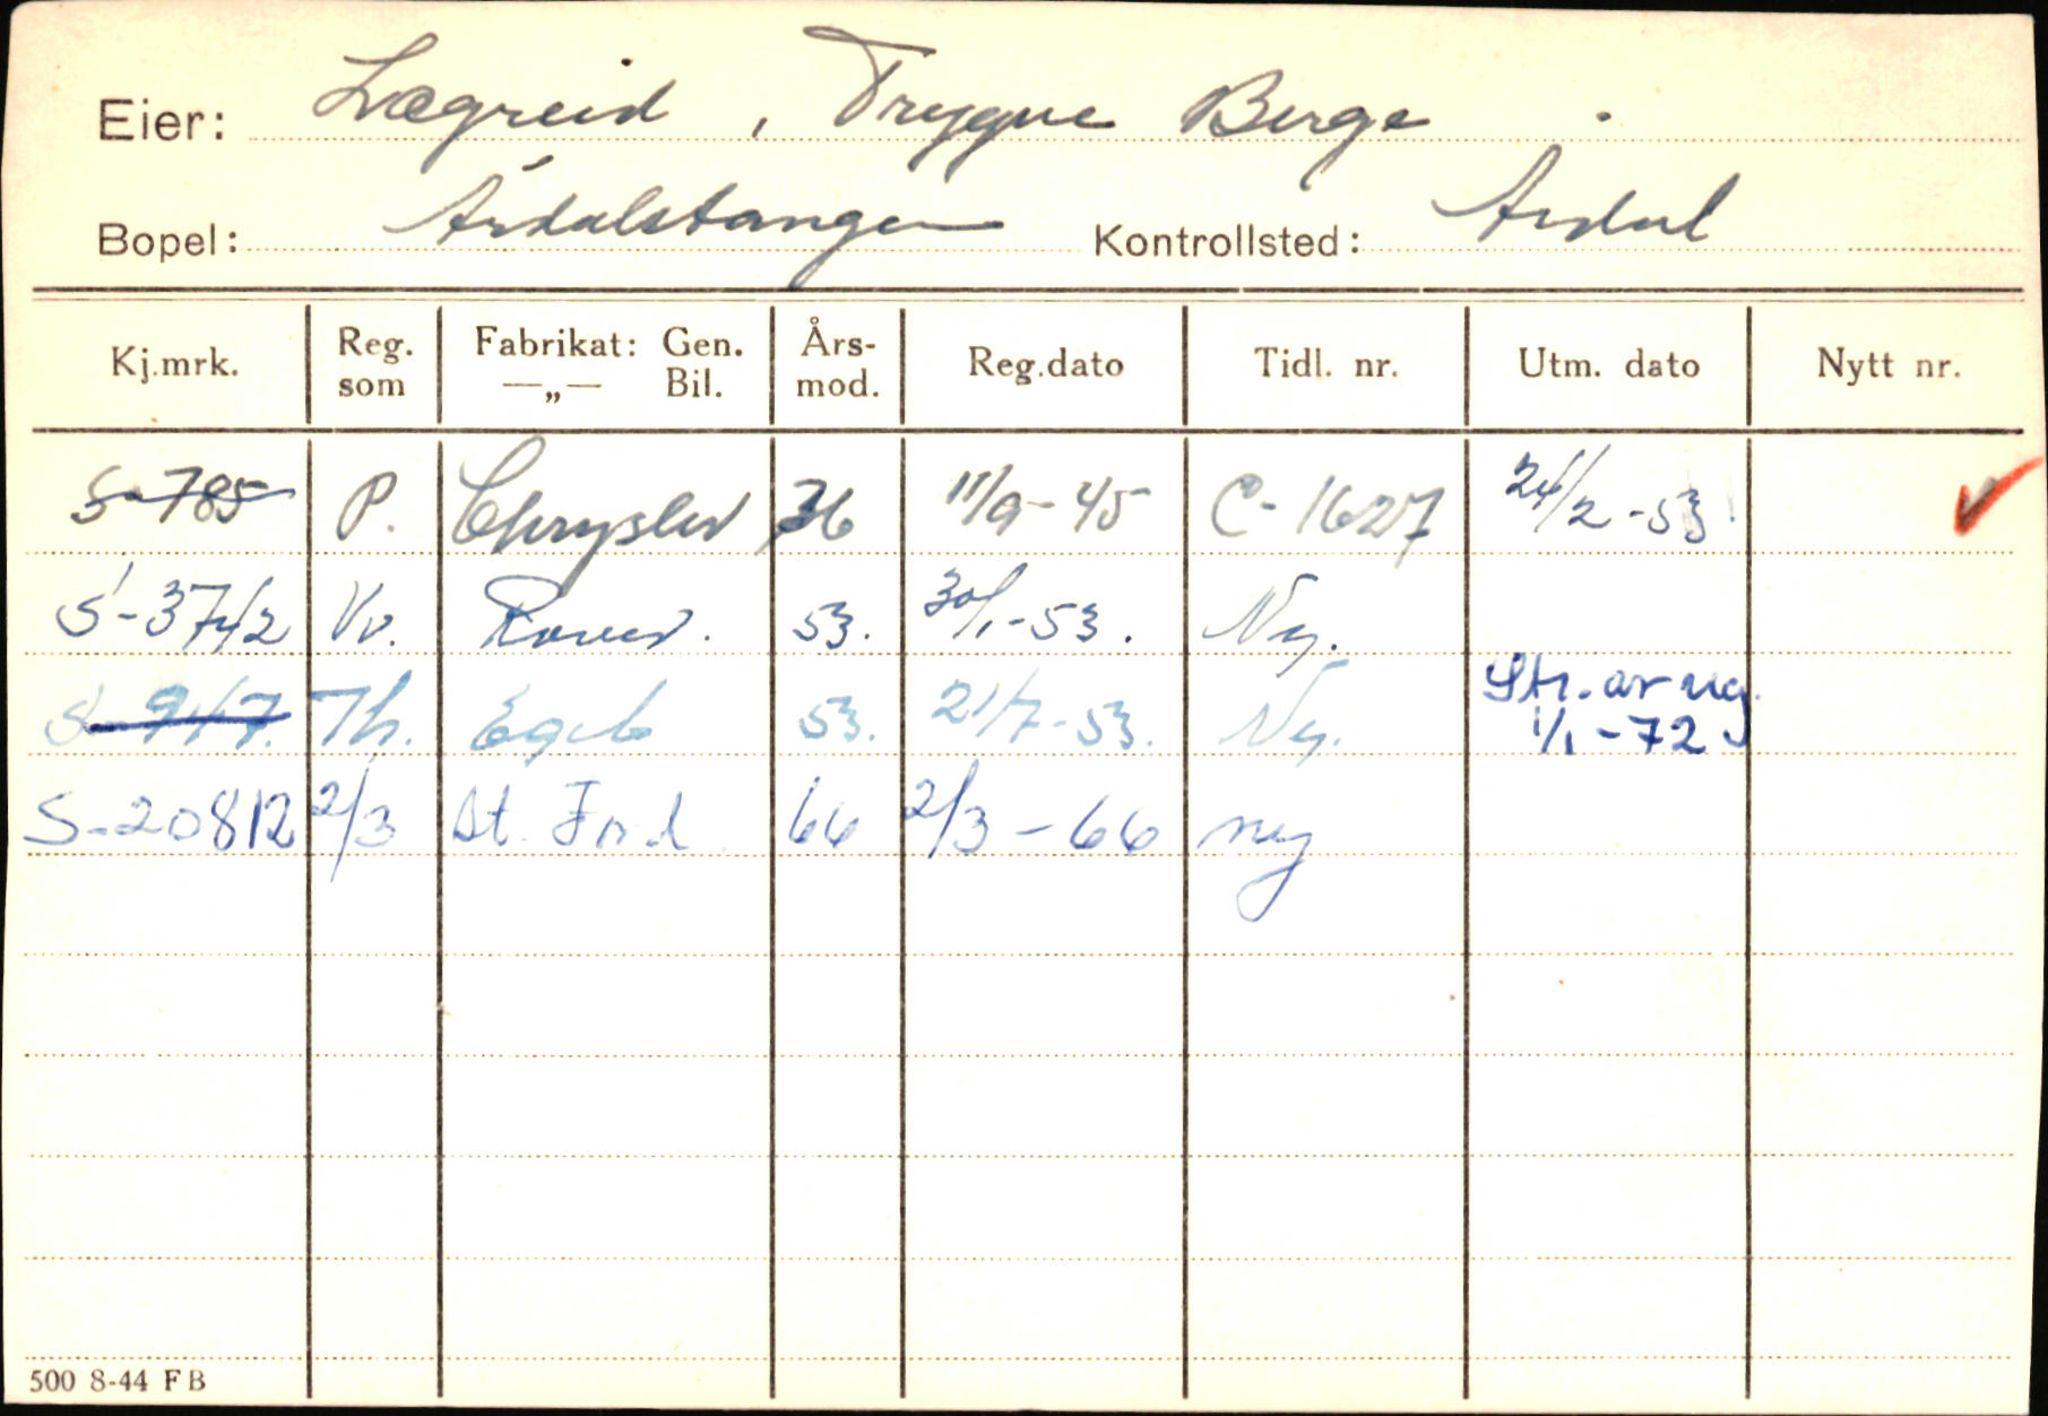 Eier: Lægreid, Trygve Berge.
Bopel: Årdalstangen Kontrollsted: Årdal
Kj.mrk. Reg. som Fabrikat: Gen. —„— Bil. Års-mod. Reg.dato Tidl. nr. Utm. dato Nytt nr.
S-785 P. Chrysler 36 11/9-45 C-1627 24/2-53.
S-3742 Vv. Rover. 53. 30/1-53. Ny.
S-947. Th. 53. 21/7-53. Ny. Str. av reg. 1/1-72
S-20812 2/3 St. Ford 66 2/3-66 ny
500 8-44 FB